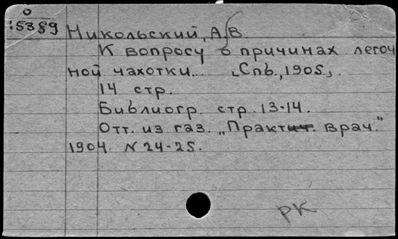 0
15389
Никольский, А.В.
К вопросу о причинах легоч
ной чахотки... Спб., 1905.
14 стр.
Библиогр. стр. 13-14.
Отт. из газ. „Практич. врач."
1904. N 24-25.
РК